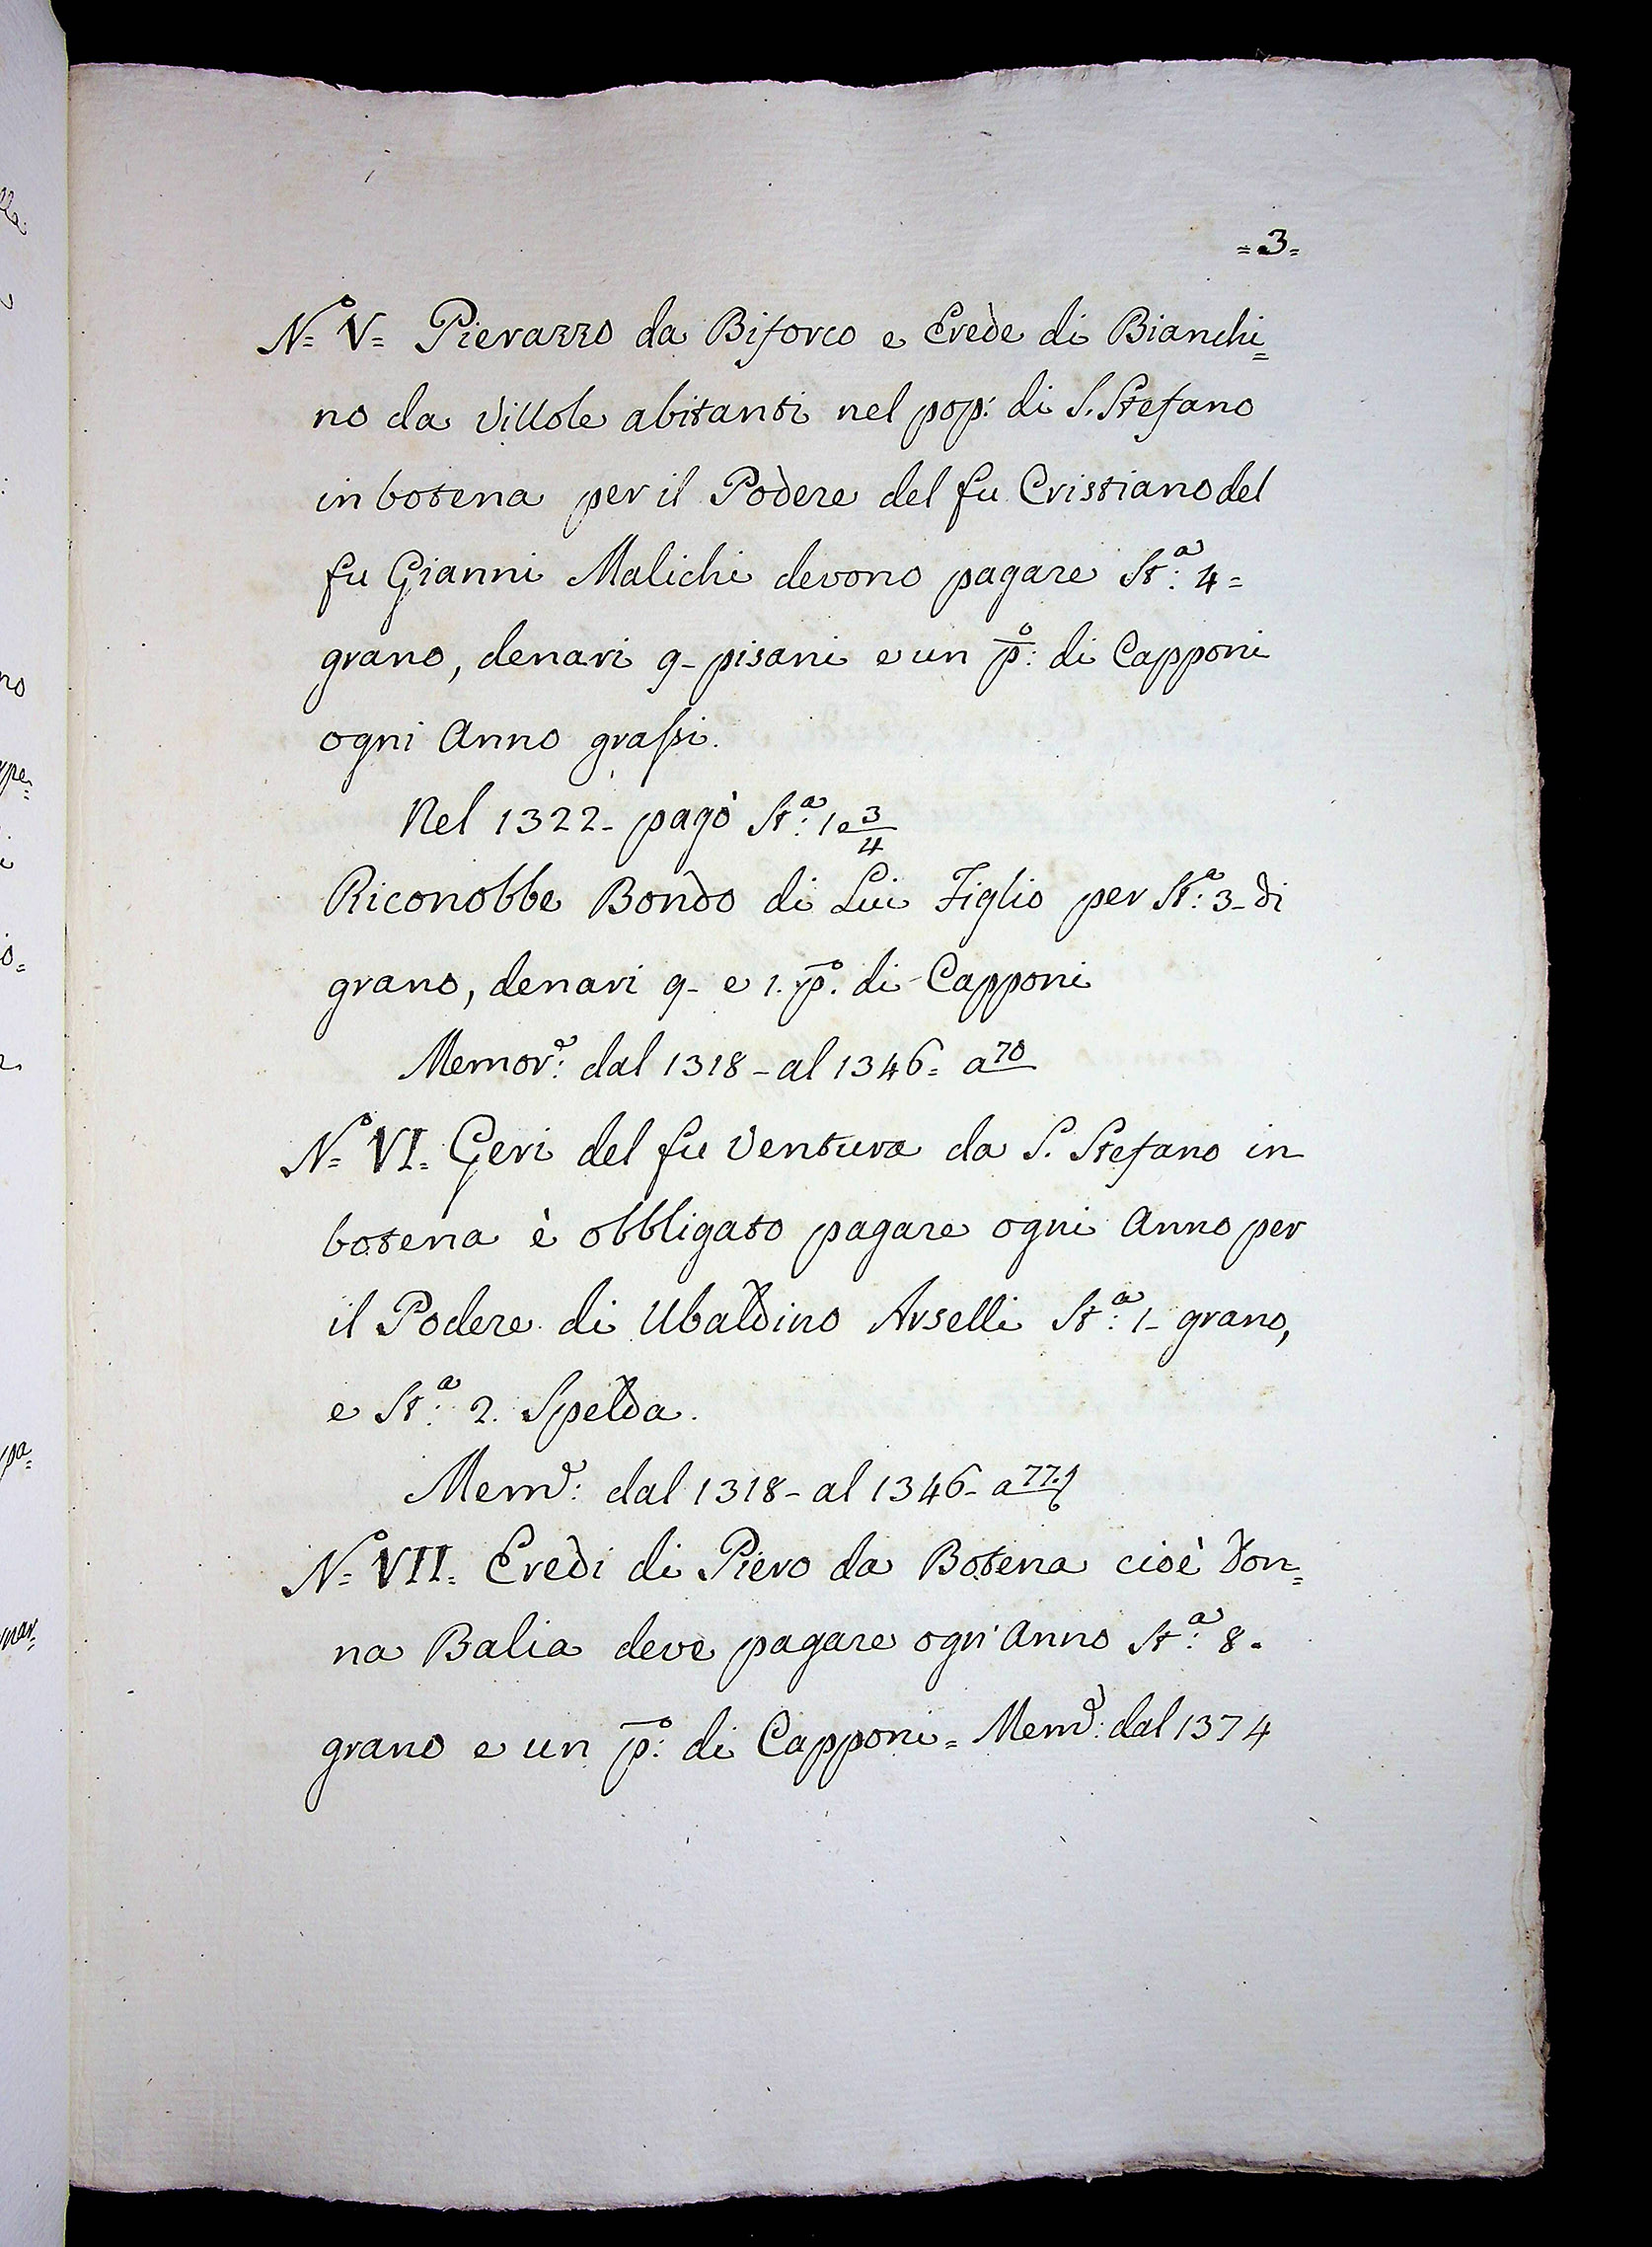 =3=
N.º V= Pierazzo da Biforco e Erede di Bianchi=
no da Villole abitanti nel pop: di S. Stefano
in botena per il Podere del fu Cristiano del
fu Gianni Malichi devono pagare St.ª: 4=
grano, denari 9- pisani e un p.º: di Capponi
ogni Anno grassi.
Nel 1322- pagò St.ª: 1 e 3/4
Riconobbe Bondo di Lui Figlio per St.ª: 3- di
grano, denari 9- e 1. p.º di Capponi
Memor.e: dal 1318- al 1346= a 70
N.º VI= Geri del fu Ventura da S. Stefano in
botena è obbligato pagare ogni Anno per
il Podere di Ubaldino Arselli St.ª: 1- grano,
e St.ª: 2. Spelda.
Mem.e: dal 1318- al 1346- a 77.
N.º VII= Eredi di Piero da Botena cioè Don=
na Balia deve pagare ogn' Anno St.ª: 8=
grano e un p.º: di Capponi= Mem.e: dal 1374